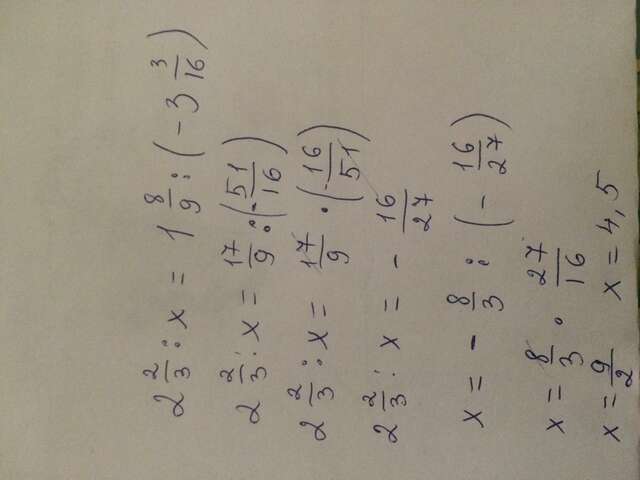 2 2/3 : x = 1 8/9 : (-3 3/16)
2 2/3 : x = 17/9 : (-51/16)
2 2/3 : x = 17/9 · (-16/51)
2 2/3 : x = - 16/27
x = - 8/3 : (- 16/27)
x = 8/3 · 27/16
x = 9/2 x = 4,5